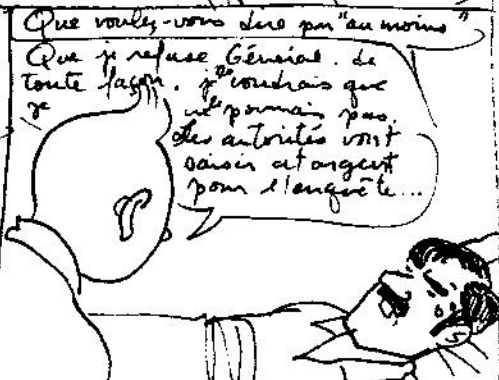 Que voulez-vous dire par "au moins"
Que je refuse Général. De
toute façon, je le voudrais que
je ne le pourrais pas.
Les autorités vont
saisir cet argent
pour l'enquête...